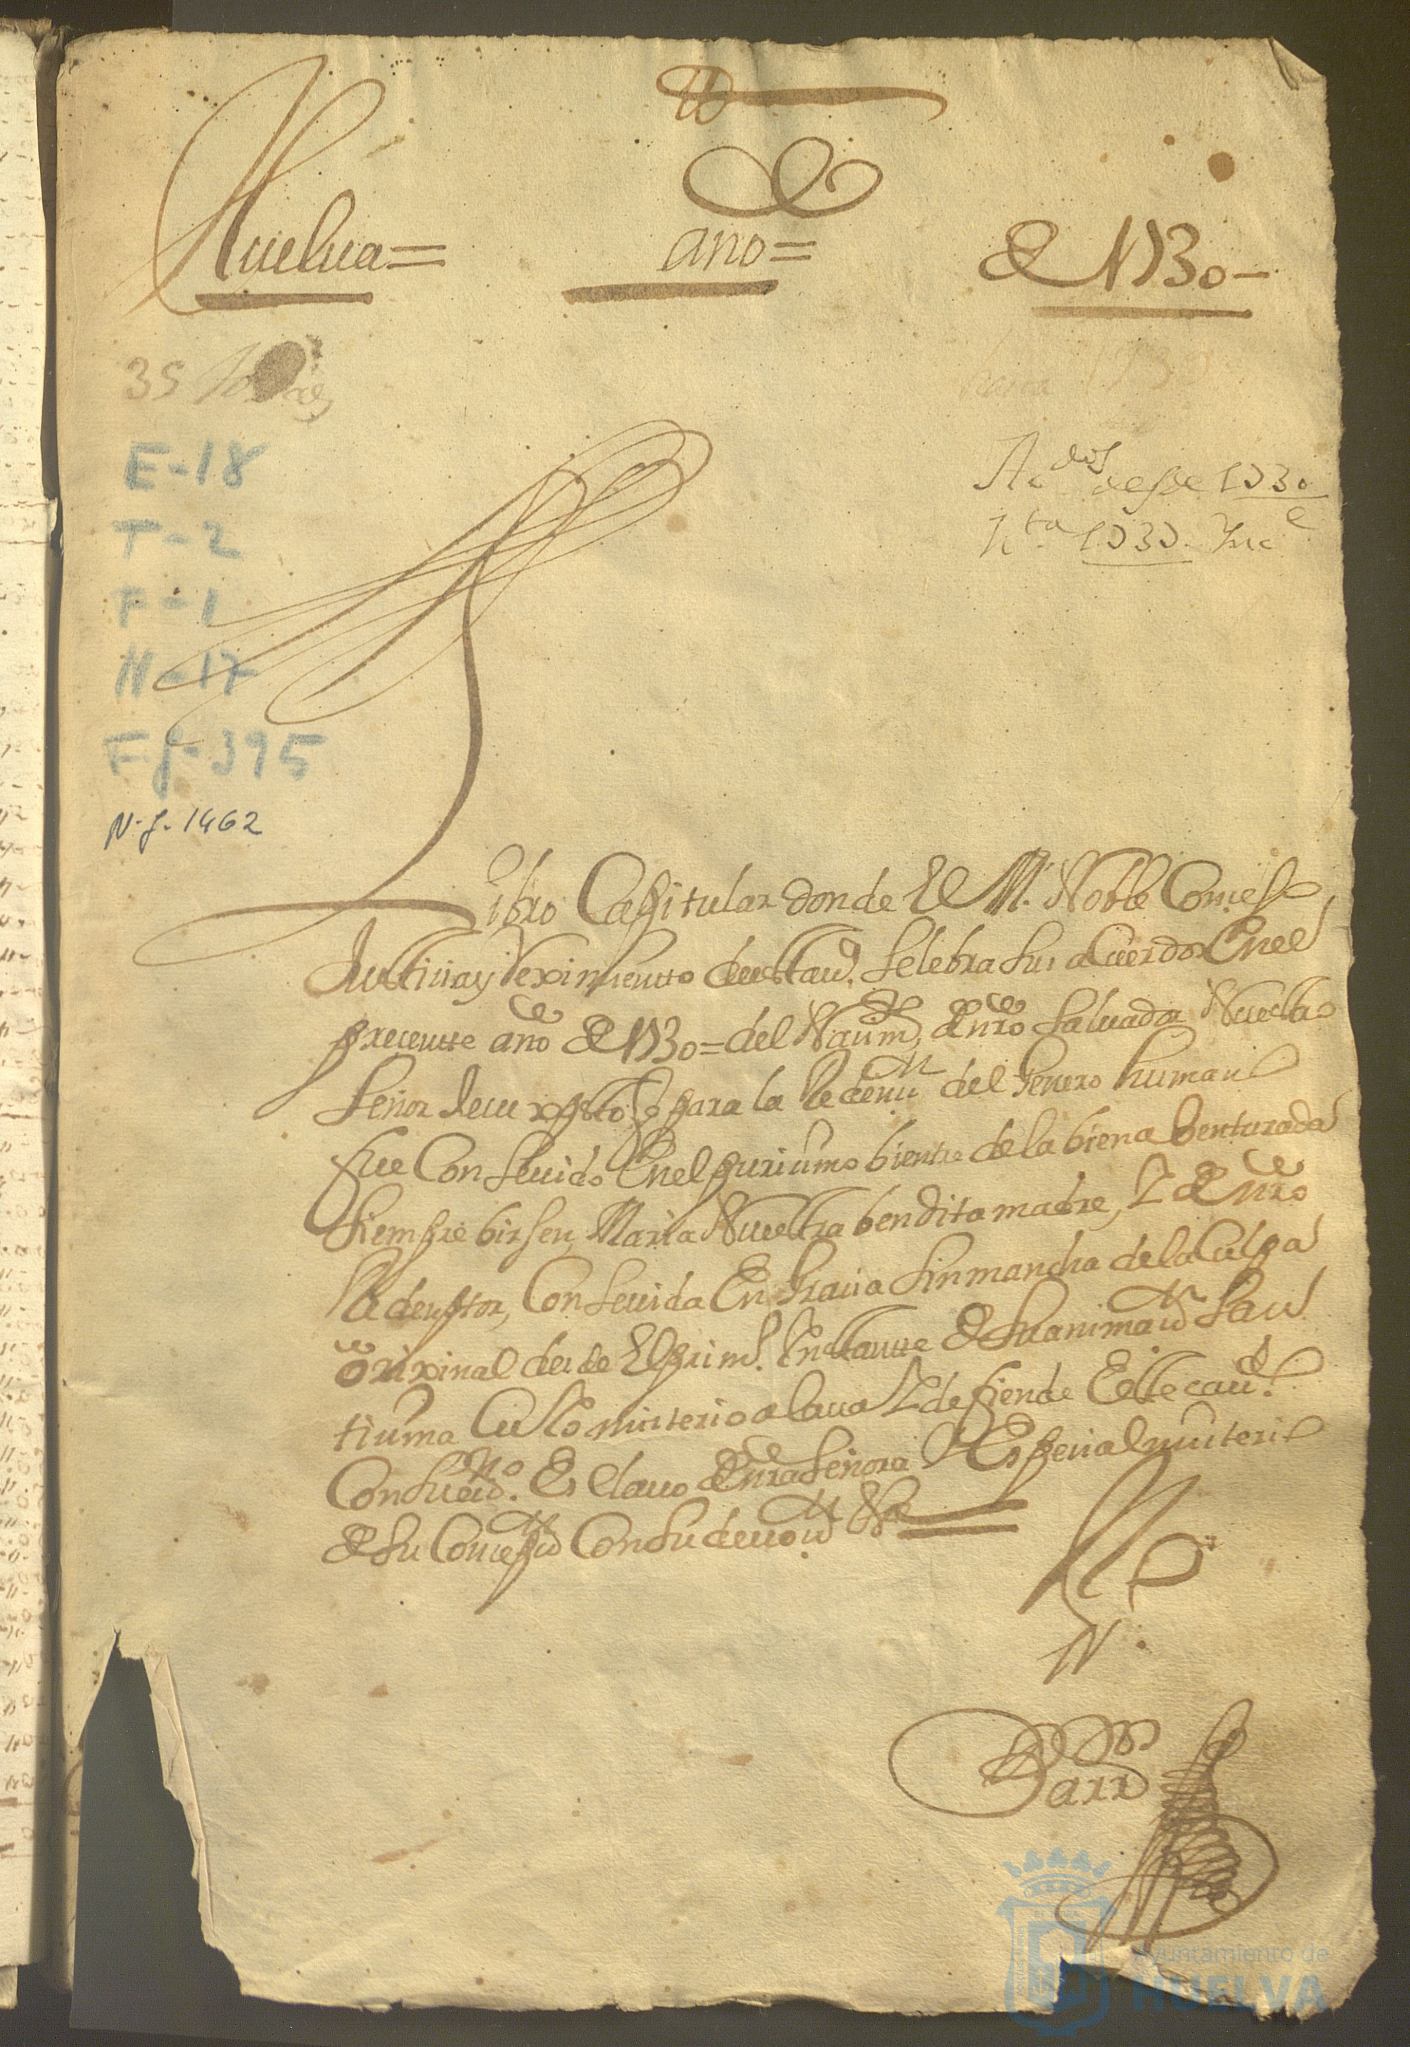 Huelua=
año=
de 1730-
35
E-18
T-2
F-1
N-17
Fg-395
N.g. 1462
Acdos desde 1730
hta 1737. Ince
Libro Capitular donde El M. Noble Conçejo
Justiçia y Reximientto desta uª. selebra sus acuerdos En el
precentte año de 1730= del Naçimto de nro Saluador Nuestro
Señor Jesu xpsto. q para la Redençn del Jenero humano
fue Conseuido En el purisimo bientre de la biena benturada
siempre birjen Maria Nuestra bendita madre, I de nro
Redemptor, Conseuida En Graçia sin mancha de la Culpa
orixinal desde El prim. Instantte de su animaçn San
tisima Cuio misterio alaua I defiende Este cauº.
Con su essno. Esclauo de nra Señora I Espeçial misterio
de su Conçepçn Con su deuoçn
Ayuntamiento de
HUELVA